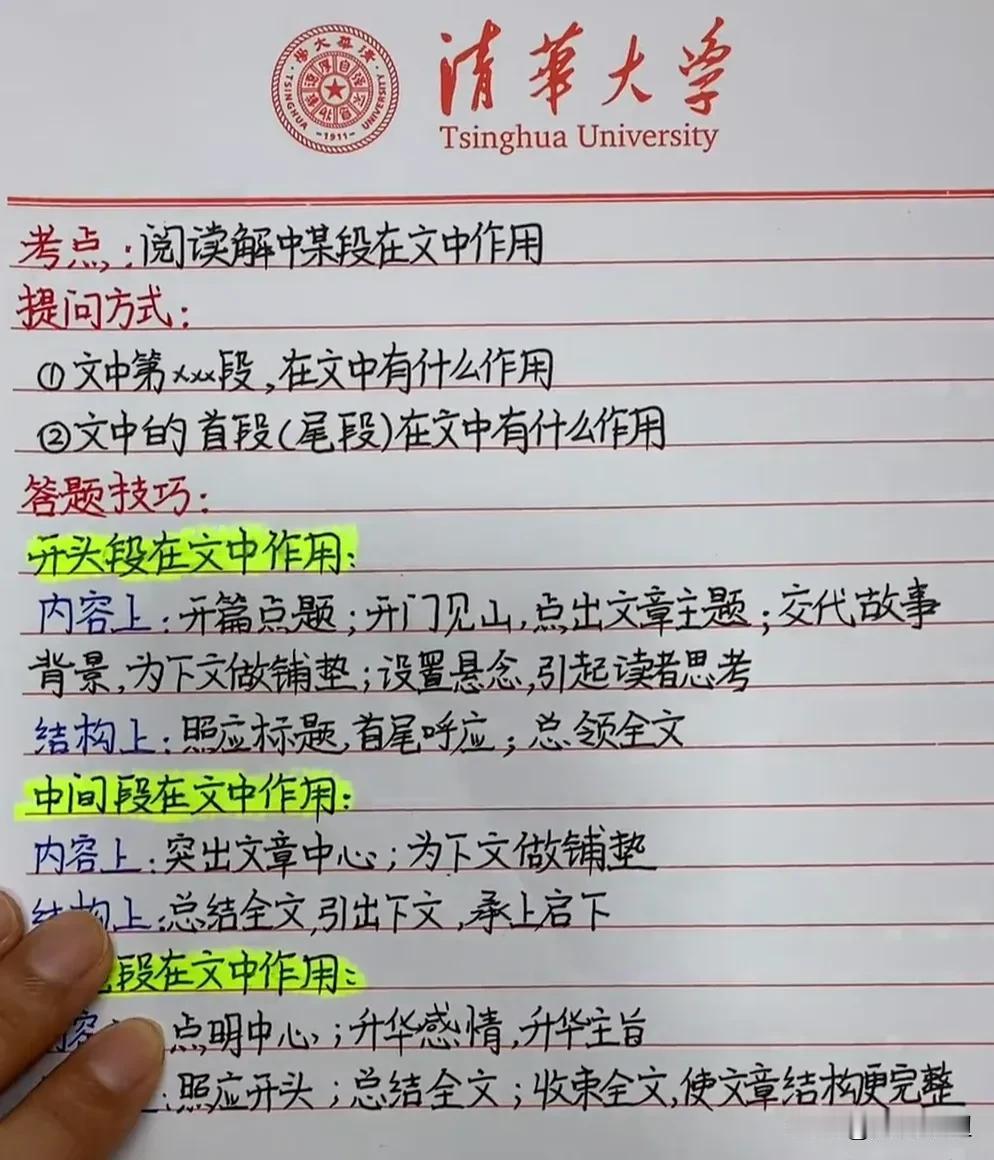 清華大学
Tsinghua University
TSINGHUA UNIVERSITY
-1911-
考点:阅读解中某段在文中作用
提问方式:
①文中第xxx段,在文中有什么作用
②文中的首段(尾段)在文中有什么作用
答题技巧:
开头段在文中作用:
内容上:开篇点题;开门见山,点出文章主题;交代故事
背景,为下文做铺垫;设置悬念,引起读者思考
结构上:照应标题,首尾呼应;总领全文
中间段在文中作用:
内容上:突出文章中心;为下文做铺垫
结构上:总结全文,引出下文,承上启下
段在文中作用:
内容 点明中心;升华感情,升华主旨
:照应开头;总结全文;收束全文,使文章结构更完整